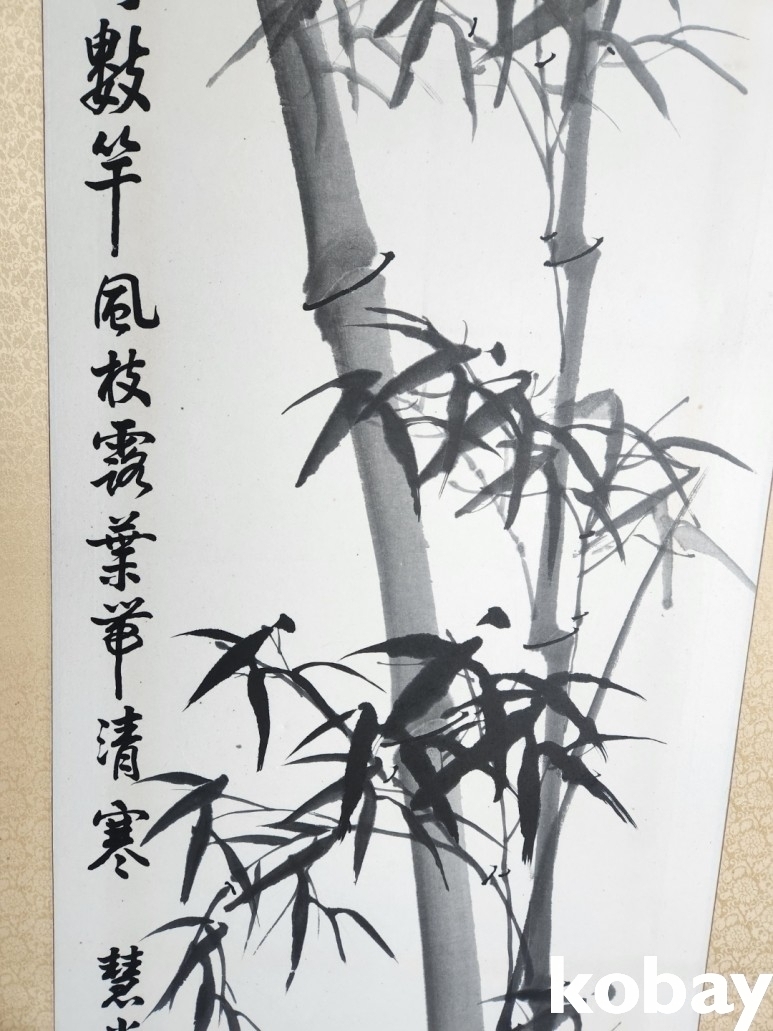 數竿風枝露葉带清寒 慧
kobay